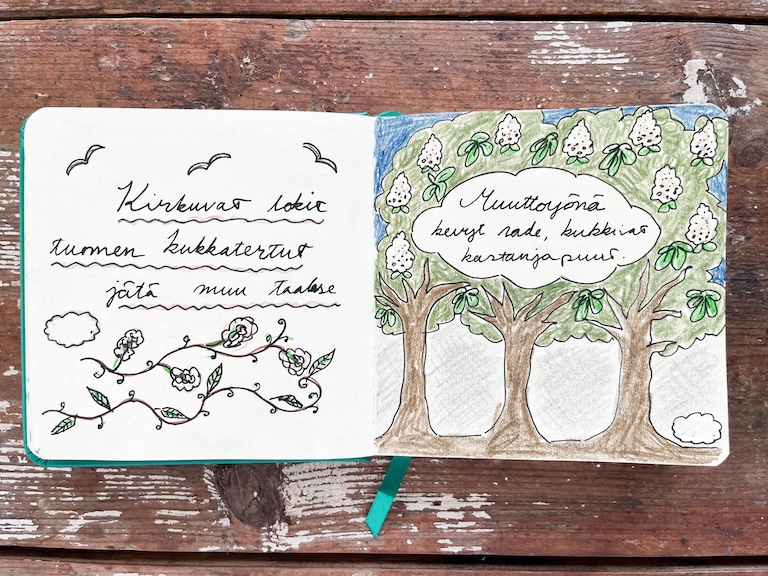 Kirkuvat lokit
tuomen kukkatertut
jätä muu taakse
Muuttoyönä
kevyt sade, kukkivat
kastanjapuut.